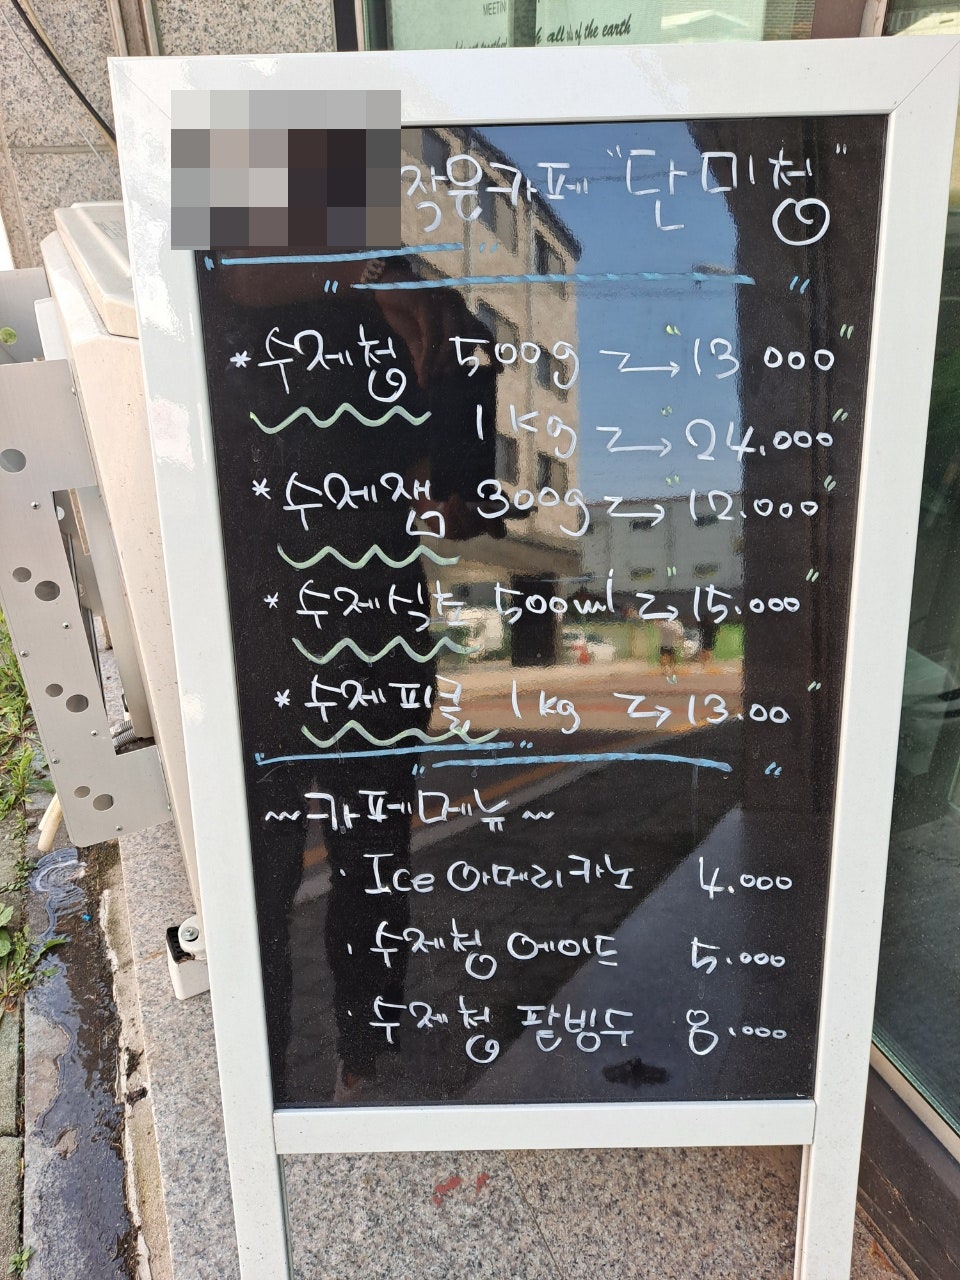 MEETIN
all is of the earth
작은카페 "단미청"
*수제청 500g → "13.000"
1kg → "24.000"
*수제잼 300g → "12.000"
*수제식초 500ml → "15.000"
*수제피클 1kg → "13.00"
~카페메뉴~
· Ice 아메리카노 4.000
· 수제청 에이드 5.000
· 수제청 팥빙수 8.000